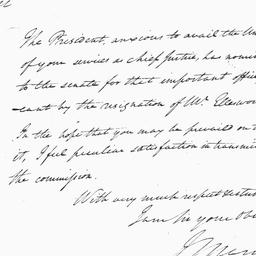 The President, anxious to avail the Un
of your services as Chief Justice, has nomin
to the senate for that important office
cant by the resignation of Mr Ellswor
In the hope that you may be prevailed on t
it, I feel peculiar satisfaction in transmit
the commission.
With very much respect
I am Sir your Obe